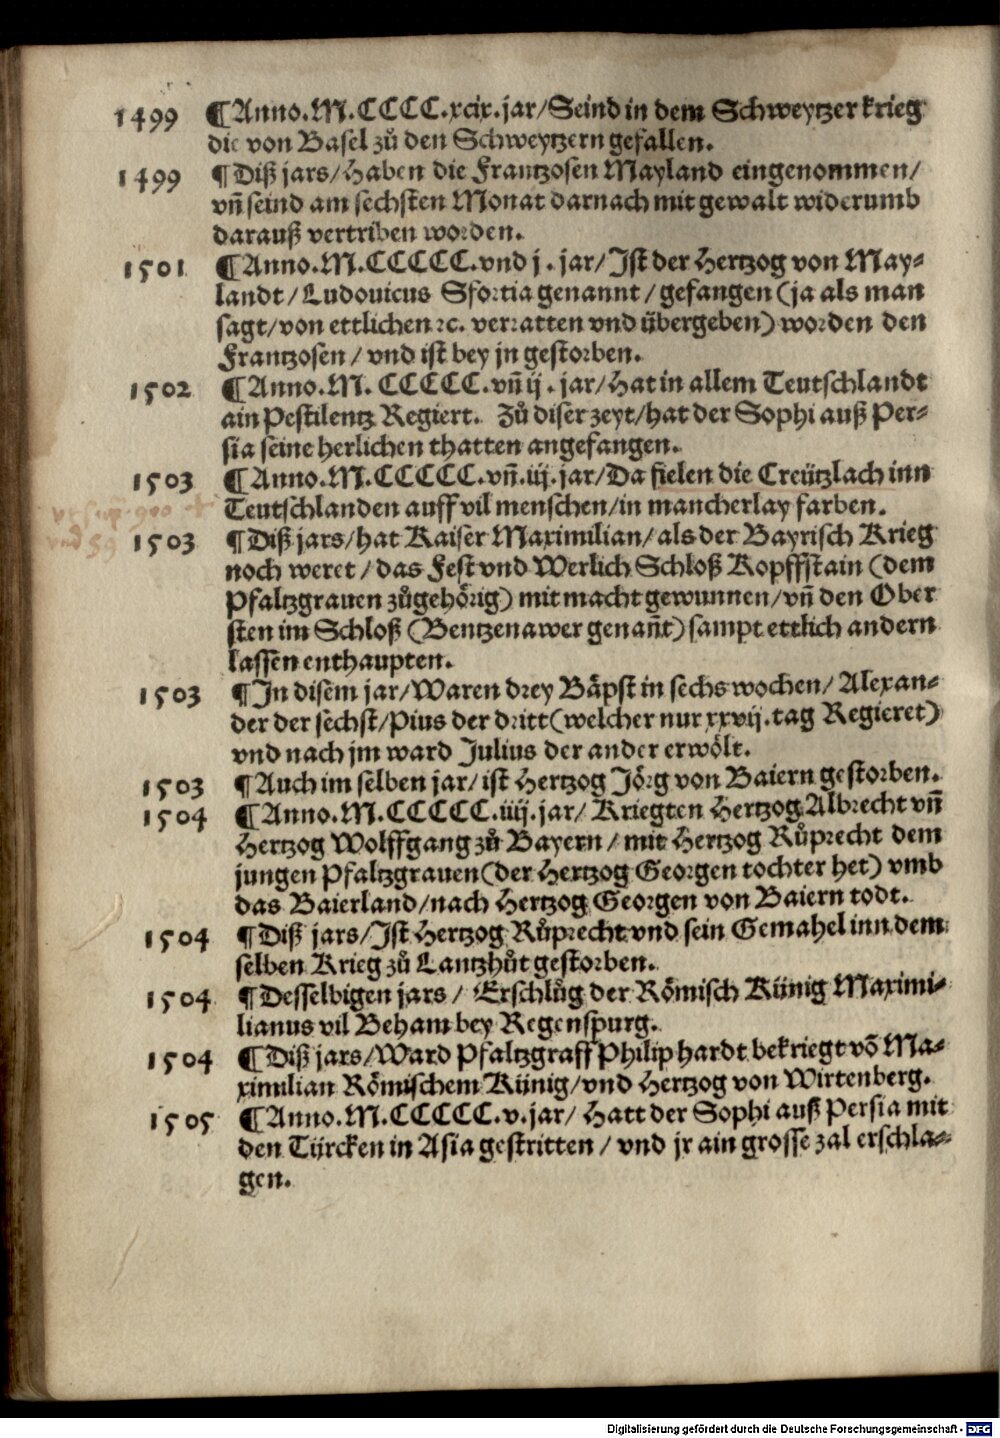 1499 ¶Anno.M.CCCC.xcix.jar/Seind in dem Schweytzer krieg
die von Basel zů den Schweytzern gefallen.
1499 ¶Diß jars/Haben die Frantzosen Mayland eingenommen/
vñ seind am sechsten Monat darnach mit gewalt widerumb
darauß vertriben worden.
1501 ¶Anno.M.CCCCC.vnd j. jar/Ist der Hertzog von May⸗
landt/Ludouicus Sfortia genannt/gefangen (ja als man
sagt/von ettlichen ꝛc. verratten vnd übergeben) worden den
Frantzosen/vnd ist bey jn gestorben.
1502 ¶Anno.M.CCCCC.vñ ij. jar/Hat in allem Teutschlandt
ain Pestilentz Regiert. Zů diser zeyt/hat der Sophi auß Per⸗
sia seine herlichen thatten angefangen.
1503 ¶Anno.M.CCCCC.vñ.iij.jar/Da fielen die Creützlach inn
Teutschlanden auff vil menschen/in mancherlay farben.
1503 ¶Diß jars/hat Kaiser Maximilian/als der Bayrisch Krieg
noch weret/das Fest vnd Werlich Schloß Kopffstain (dem
Pfaltzgrauen zůgehörig) mit macht gewunnen/vñ den Ober
sten im Schloß (Bentzenawer genañt) sampt ettlich andern
lassen enthaupten.
1503 ¶In disem jar/Waren drey Bäpst in sechs wochen/Alexan⸗
der der sechst/Pius der dritt (welcher nur xxvij.tag Regieret)
vnd nach jm ward Julius der ander erwölt.
1503 ¶Auch im selben jar/ist Hertzog Jörg von Baiern gestorben.
1504 ¶Anno.M.CCCCC.iiij.jar/Kriegten Hertzog Albrecht vñ
Hertzog Wolffgang zů Bayern/mit Hertzog Růprecht dem
jungen Pfaltzgrauen (der Hertzog Georgen tochter het) vmb
das Baierland/nach Hertzog Georgen von Baiern todt.
1504 ¶Diß jars/Ist Hertzog Růprecht vnd sein Gemahel inn dem
selben Krieg zů Lantzhůt gestorben.
1504 ¶Desselbigen jars/Erschlůg der Römisch Künig Maximi⸗
lianus vil Beham bey Regenspurg.
1504 ¶Diß jars/Ward Pfaltzgraff Philip hardt bekriegt võ Ma⸗
ximilian Römischem Künig/vnd Hertzog von Wirtenberg.
1505 ¶Anno.M.CCCCC.v.jar/Hatt der Sophi auß Persia mit
den Türcken in Asia gestritten/vnd jr ain grosse zal erschla⸗
gen.
Digitalisierung gefördert durch die Deutsche Forschungsgemeinschaft - DFG